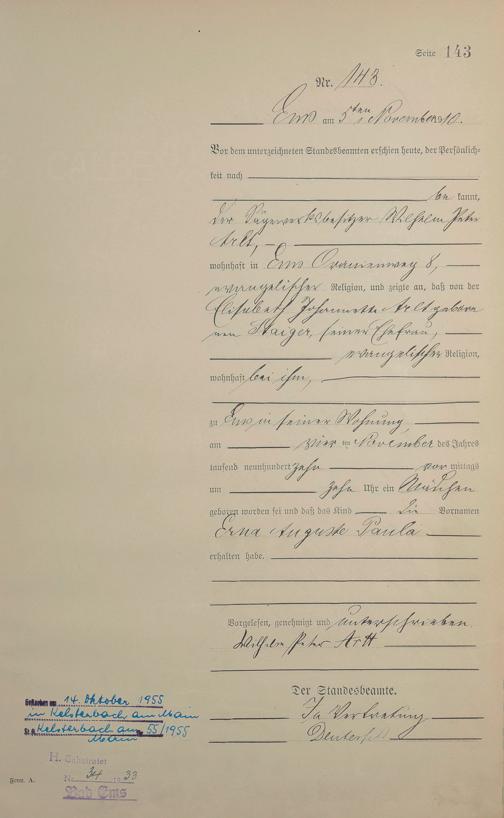 Seite 143
Nr. 143.
Ems am 5ten November 10.
Vor dem unterzeichneten Standesbeamten erschien heute, der Persönlich-
keit nach
be kannt,
der Sägewerksbesitzer Wilhelm Peter
Arlt,
wohnhaft in Ems Oranienweg 8,
evangelischer Religion, und zeigte an, daß von der
Elisabeth Johannette Arlt gebore
nen Staiger, seiner Ehefrau,
evangelischer Religion,
wohnhaft bei ihm,
zu Ems in seiner Wohnung
am vier ten November des Jahres
tausend neunhundert zehn vor mittags
um zehn Uhr ein Mädchen
geboren worden sei und daß das Kind die Vornamen
Erna Auguste Paula
erhalten habe.
Vorgelesen, genehmigt und unterschrieben
Wilhelm Peter Arlt
Der Standesbeamte.
In Vertretung
Gestorben am 14. Oktober 1955
in Kelsterbach am Main
St. A. Kelsterbach am Nr. 55/1955
Main
H. Geheiratet
Nr. 34 1933
Bad Ems
Form. A.